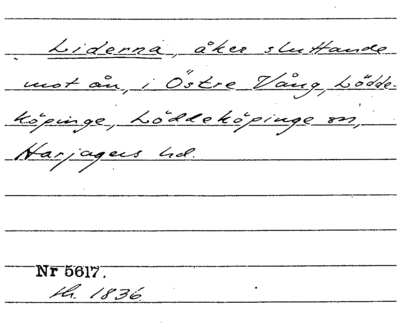 Liderna, åker sluttande
mot ån, i Östre Vång, Lödde-
köpinge, Löddeköpinge sn,
Harjagers hd.
Nr 5617.
th. 1836